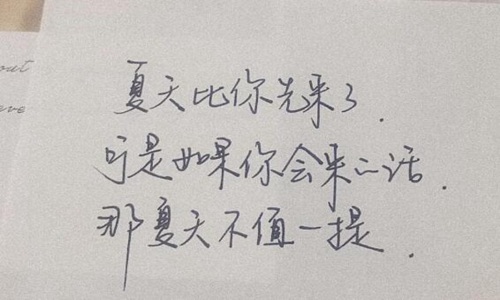 夏天比你先来了.
可是如果你会来の话.
那夏天不值一提.